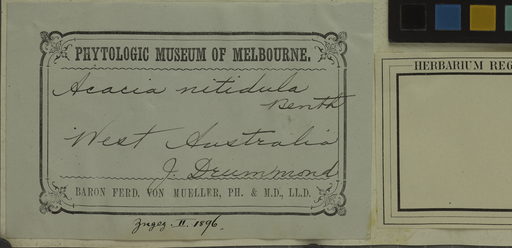 PHYTOLOGIC MUSEUM OF MELBOURNE,
Acacia nitidula
Benth
West Australia
J. Drummond
BARON FERD. VON MUELLER, PH. & M.D., LL.D.
II. 1896.
HERBARIUM REG